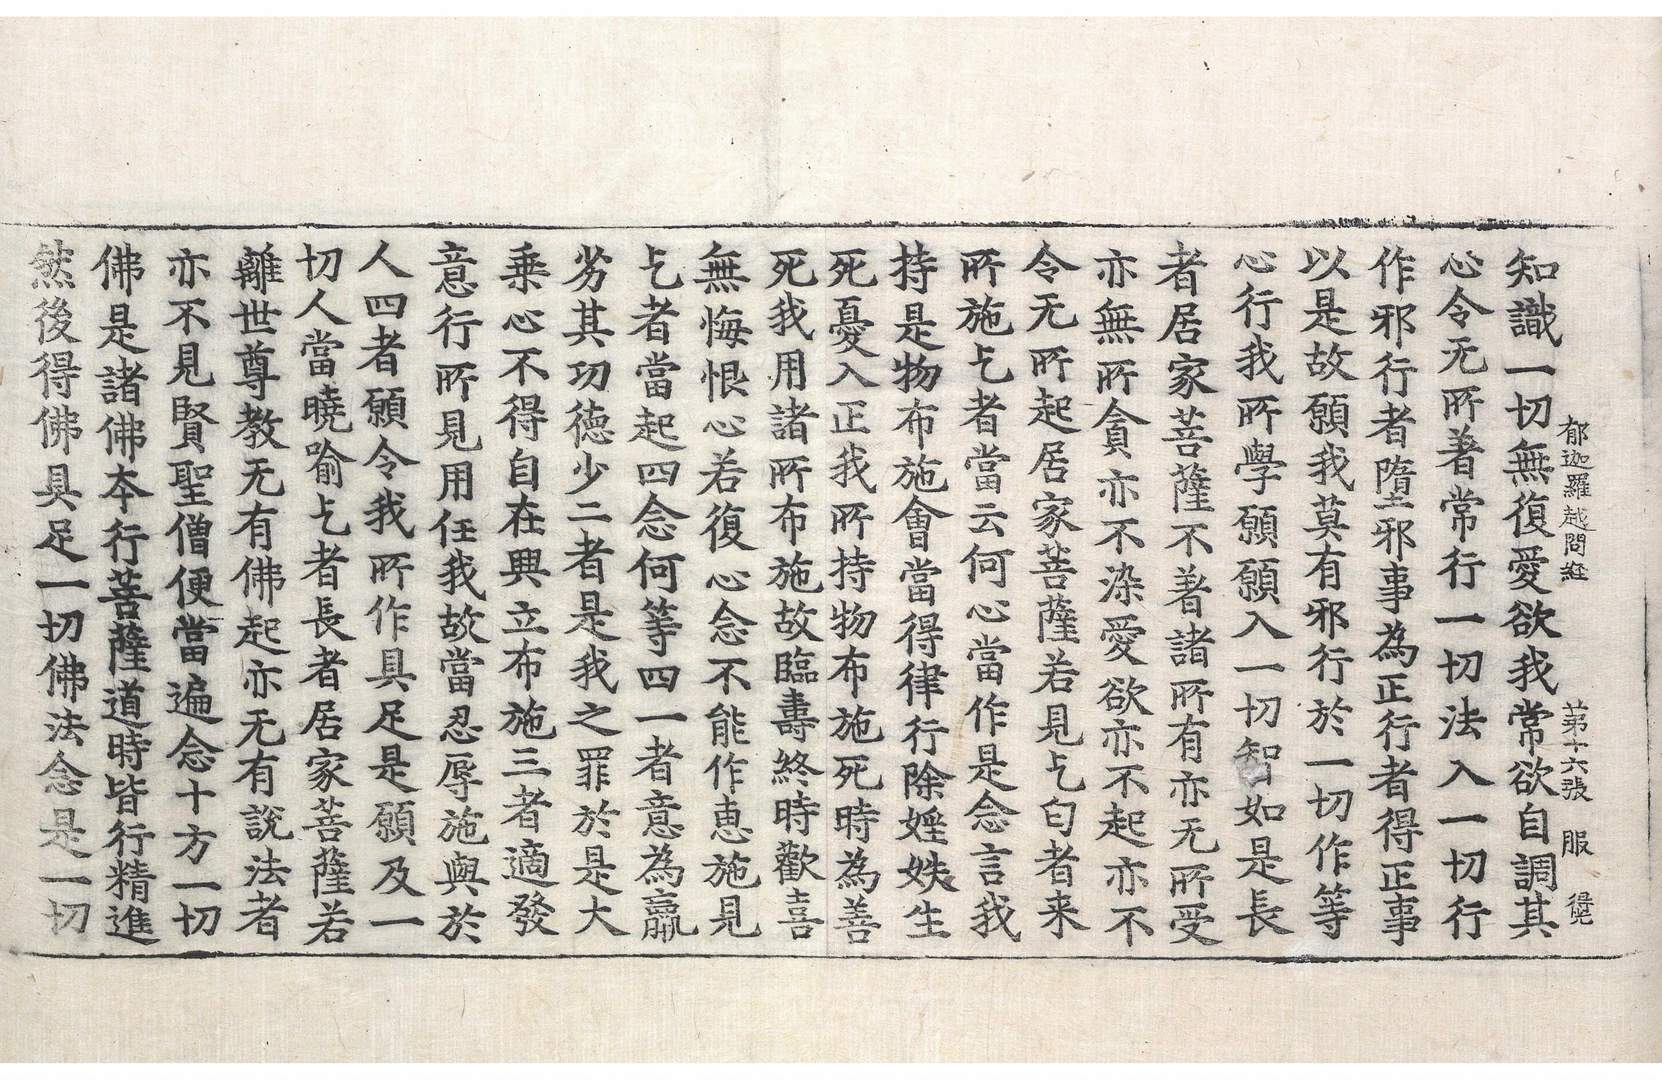 郁迦羅越問経　第十六張　服
知識一切無復愛欲我常欲自調其
心令无所著常行一切法入一切行
作邪行者墮邪事為正行者得正事
以是故願我莫有邪行於一切作等
心行我所學願願入一切智如是長
者居家菩薩不著諸所有亦无所受
亦無所貪亦不染愛欲亦不起亦不
令无所起居家菩薩若見乞匃者来
所施乞者當云何心當作是念言我
持是物布施會當得律行除婬妷生
死憂入正我所持物布施死時為善
死我用諸所布施故臨壽終時歡喜
無悔恨心若復心念不能作恵施見
乞者當起四念何等四一者意為羸
劣其功徳少二者是我之罪於是大
乗心不得自在興立布施三者適發
意行所見用任我故當忍辱施與於
人四者願令我所作具足是願及一
切人當曉喻乞者長者居家菩薩若
離世尊教无有佛起亦无有說法者
亦不見賢聖僧便當遍念十方一切
佛是諸佛夲行菩薩道時皆行精進
然後得佛具足一切佛法念是一切